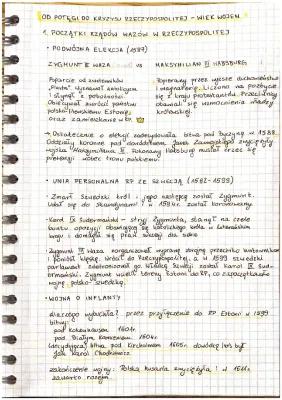 OD POTĘGI DO KRYZYSU RZECZYPOSPOLITEJ - WIEK WOJEN
1. POCZĄTKI RZĄDÓW WAZÓW W RZECZYPOSPOLITEJ
• PODWÓJNA ELEKCJA (1587)
ZYGMUNT III WAZA vs MAKSYMILIAN III HABSBURG
Poparcie od zwolenników
Popierany przez wyższe duchowieństwo
"Piasta". Wyznawał katolicyzm
i magnaterię. Liczono na pozbycie
i słynął z pobożności.
się z kraju protestantów. Przeciwnicy
Obiecywał zwrócić państwu
obawiali się wzmocnienia władzy
polsko-litewskiemu Estonię,
królewskiej.
oraz zamieszkanie w
→ Ostatecznie o elekcji zadecydowała bitwa pod Byczyną w 1588.
Oddziały koronne pod dowództwem Jana Zamoyskiego zwyciężyły
wojska Maksymiliana II. Pokonany Habsburg musiał zrzec się
pretensji wobec tronu polskiego.
• UNIA PERSONALNA RP ZE SZWECJĄ (1592-1599)
- Zmarł Szwedzki król i jego następcą został Zygmunt.
Udał się do Skandynawii i w 1594r. został koronowany
- Karol IX Sudermański - stryj Zygmunta, stanął na czele
buntu opozycji obawiającej się katolickiego króla w luterańskim
kraju i domagała się praw Szwecji dla siebie
- Zygmunt III Waza zorganizował wyprawę zbrojną przeciwko buntownikom
i poniósł klęskę. Wrócił do Rzeczypospolitej, a w 1599 szwedzki
parlament zdetronizował go. Władcą Szwecji został Karol IX Sud-
ermański. Zygmunt wcielił tereny Estonii do RP, co zapoczątkowało
wojnę polsko-szwedzką.
• WOJNA O INFLANTY
dlaczego wybuchła? przez przyłączenie do RP Estonii w 1599
bitwy:
pod Kokenhausen 1601r.
pod Białym Kamieniem 1604r.
decydująca bitwa pod Kircholmem 1605r. dowódcą był
Jan Karol Chodkiewicz
zakończenie wojny: Polska husaria zwyciężyła i w 1611r.
zawarto rozejm.